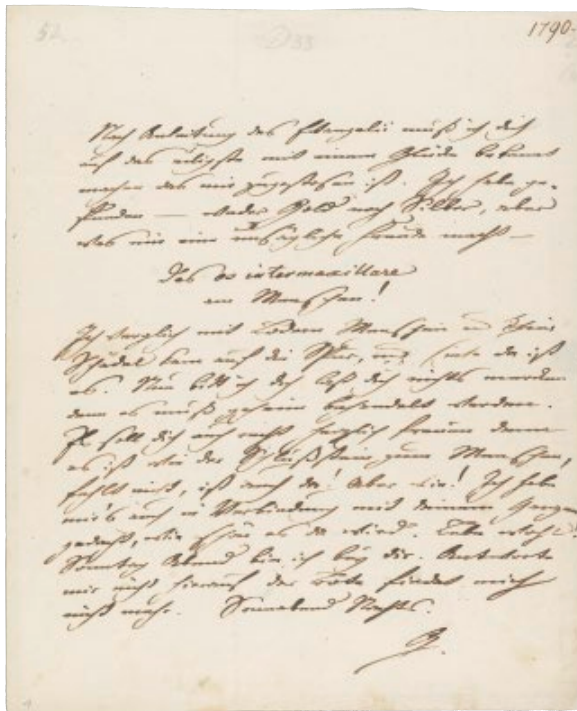 52
33
1790.
Nach Anleitung des Evangelii muß ich dich
auf das eiligste mit einem Glücke bekannt
machen das mir zugestosen ist. Ich habe ge-
funden — weder Gold noch Silber, aber
was mir eine unsägliche Freude macht —
das os intermaxillare
am Menschen!
Ich verglich mit Lodern Menschen und Thier
Schädel kam auf die Spur, und siehe da ist
es. Nur bitt ich dich laß dich nichts mercken
denn es muß geheim behandelt werden.
Es soll dich auch recht herzlich freuen denn
es ist wie der Schlußstein zum Menschen,
fehlt nicht, ist auch da! Aber wie! Ich habe
mir's auch in Verbindung mit deinem Ganzen
gedacht, wie schön es da wird. Lebe wohl!
Sonntag Abend bin ich bey dir. Antworte
mir nicht hierauf der Bote findet mich
nicht mehr. Sonnabend Nachts.
G.